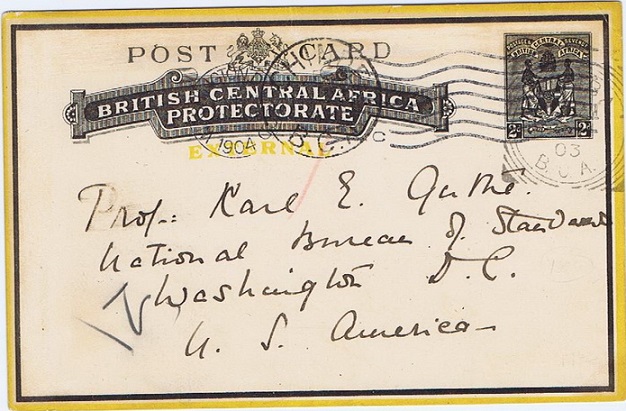 POST CARD
BRITISH CENTRAL AFRICA
PROTECTORATE
EXTERNAL
BRITISH CENTRAL AFRICA
2d 2d
1904
03
B.C.A.
Prof: Karl E. Guthe.
National Bureau of Standards
Washington D.C.
U. S. America